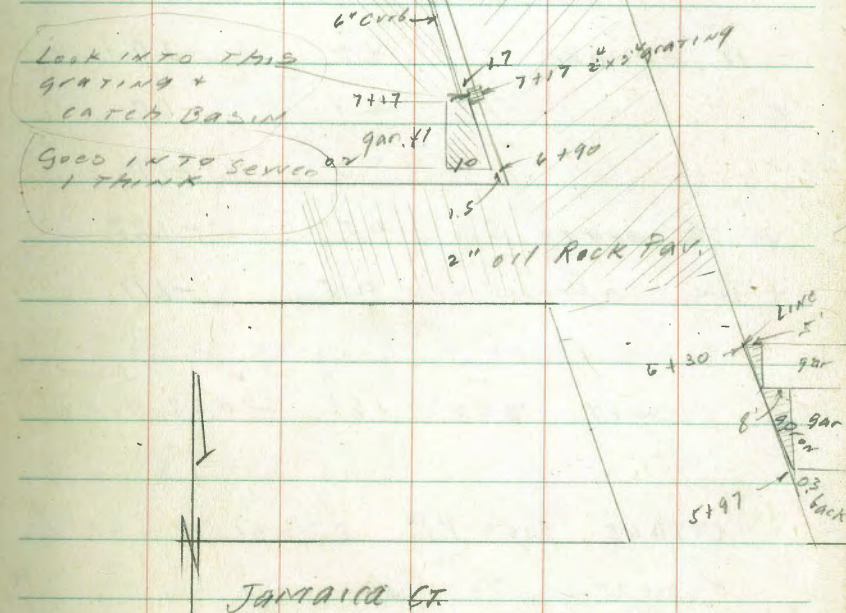 6" Curb
Look INTO THIS
grating +
CATCH BASIN
Goes INTO Sewer
I THINK
17
7+17
2"x3" grating
7+17
gar. fl
0.2
10
6+90
1.5
2" oil Rock Pav.
LINE
5'
6+30
gar
8'
gar
apron
0.3
back
5+97
N
Jamaica ST.